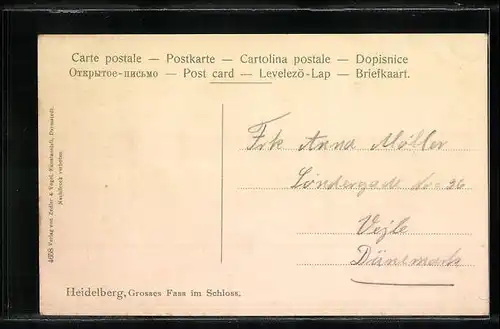 Carte postale — Postkarte — Cartolina postale — Dopisnice
Открытое-письмо — Post card — Levelező-Lap — Briefkaart.
Frk Anna Möller
Söndergade No 36
Vejle
Dänemark
4658 Verlag von Zedler & Vogel, Kunstanstalt, Darmstadt.
Nachdruck verboten.
Heidelberg, Grosses Fass im Schloss.